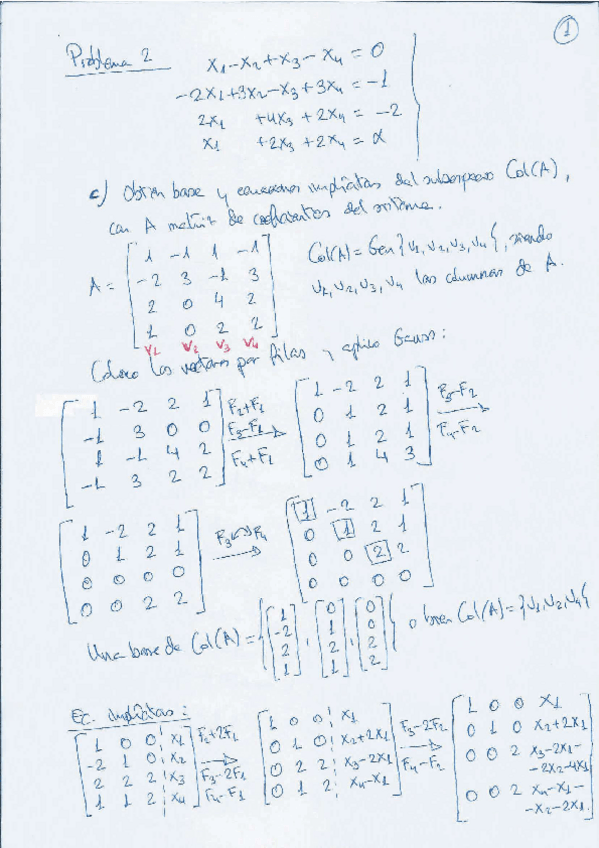 1
Problema 2
x1 - x2 + x3 - x4 = 0
-2x1 + 3x2 - x3 + 3x4 = -1
2x1 + 4x3 + 2x4 = -2
x1 + 2x3 + 2x4 = α
c) Obtén base y ecuaciones implícitas del subespacio Col(A),
con A matriz de coeficientes del sistema.
A = [ 1 -1 1 -1
-2 3 -1 3
2 0 4 2
1 0 2 2 ]
v1 v2 v3 v4
Col(A) = Gen{v1, v2, v3, v4}, siendo
v1, v2, v3, v4 las columnas de A.
Coloco los vectores por filas y aplico Gauss:
[ 1 -2 2 1
-1 3 0 0
1 -1 4 2
-1 3 2 2 ]
F2+F1
F3-F1
F4+F1
[ 1 -2 2 1
0 1 2 1
0 1 2 1
0 1 4 3 ]
F3-F2
F4-F2
[ 1 -2 2 1
0 1 2 1
0 0 0 0
0 0 2 2 ]
F3↔F4
[ 1 -2 2 1
0 1 2 1
0 0 2 2
0 0 0 0 ]
Una base de Col(A) = { [1 -2 2 1], [0 1 2 1], [0 0 2 2] } o bien Col(A) = {v1, v2, v4}
Ec. implícitas:
[ 1 0 0 x1
-2 1 0 x2
2 2 2 x3
1 1 2 x4 ]
F2+2F1
F3-2F1
F4-F1
[ 1 0 0 x1
0 1 0 x2+2x1
0 2 2 x3-2x1
0 1 2 x4-x1 ]
F3-2F2
F4-F2
[ 1 0 0 x1
0 1 0 x2+2x1
0 0 2 x3-2x1-
-2x2-4x1
0 0 2 x4-x1-
-x2-2x1 ]